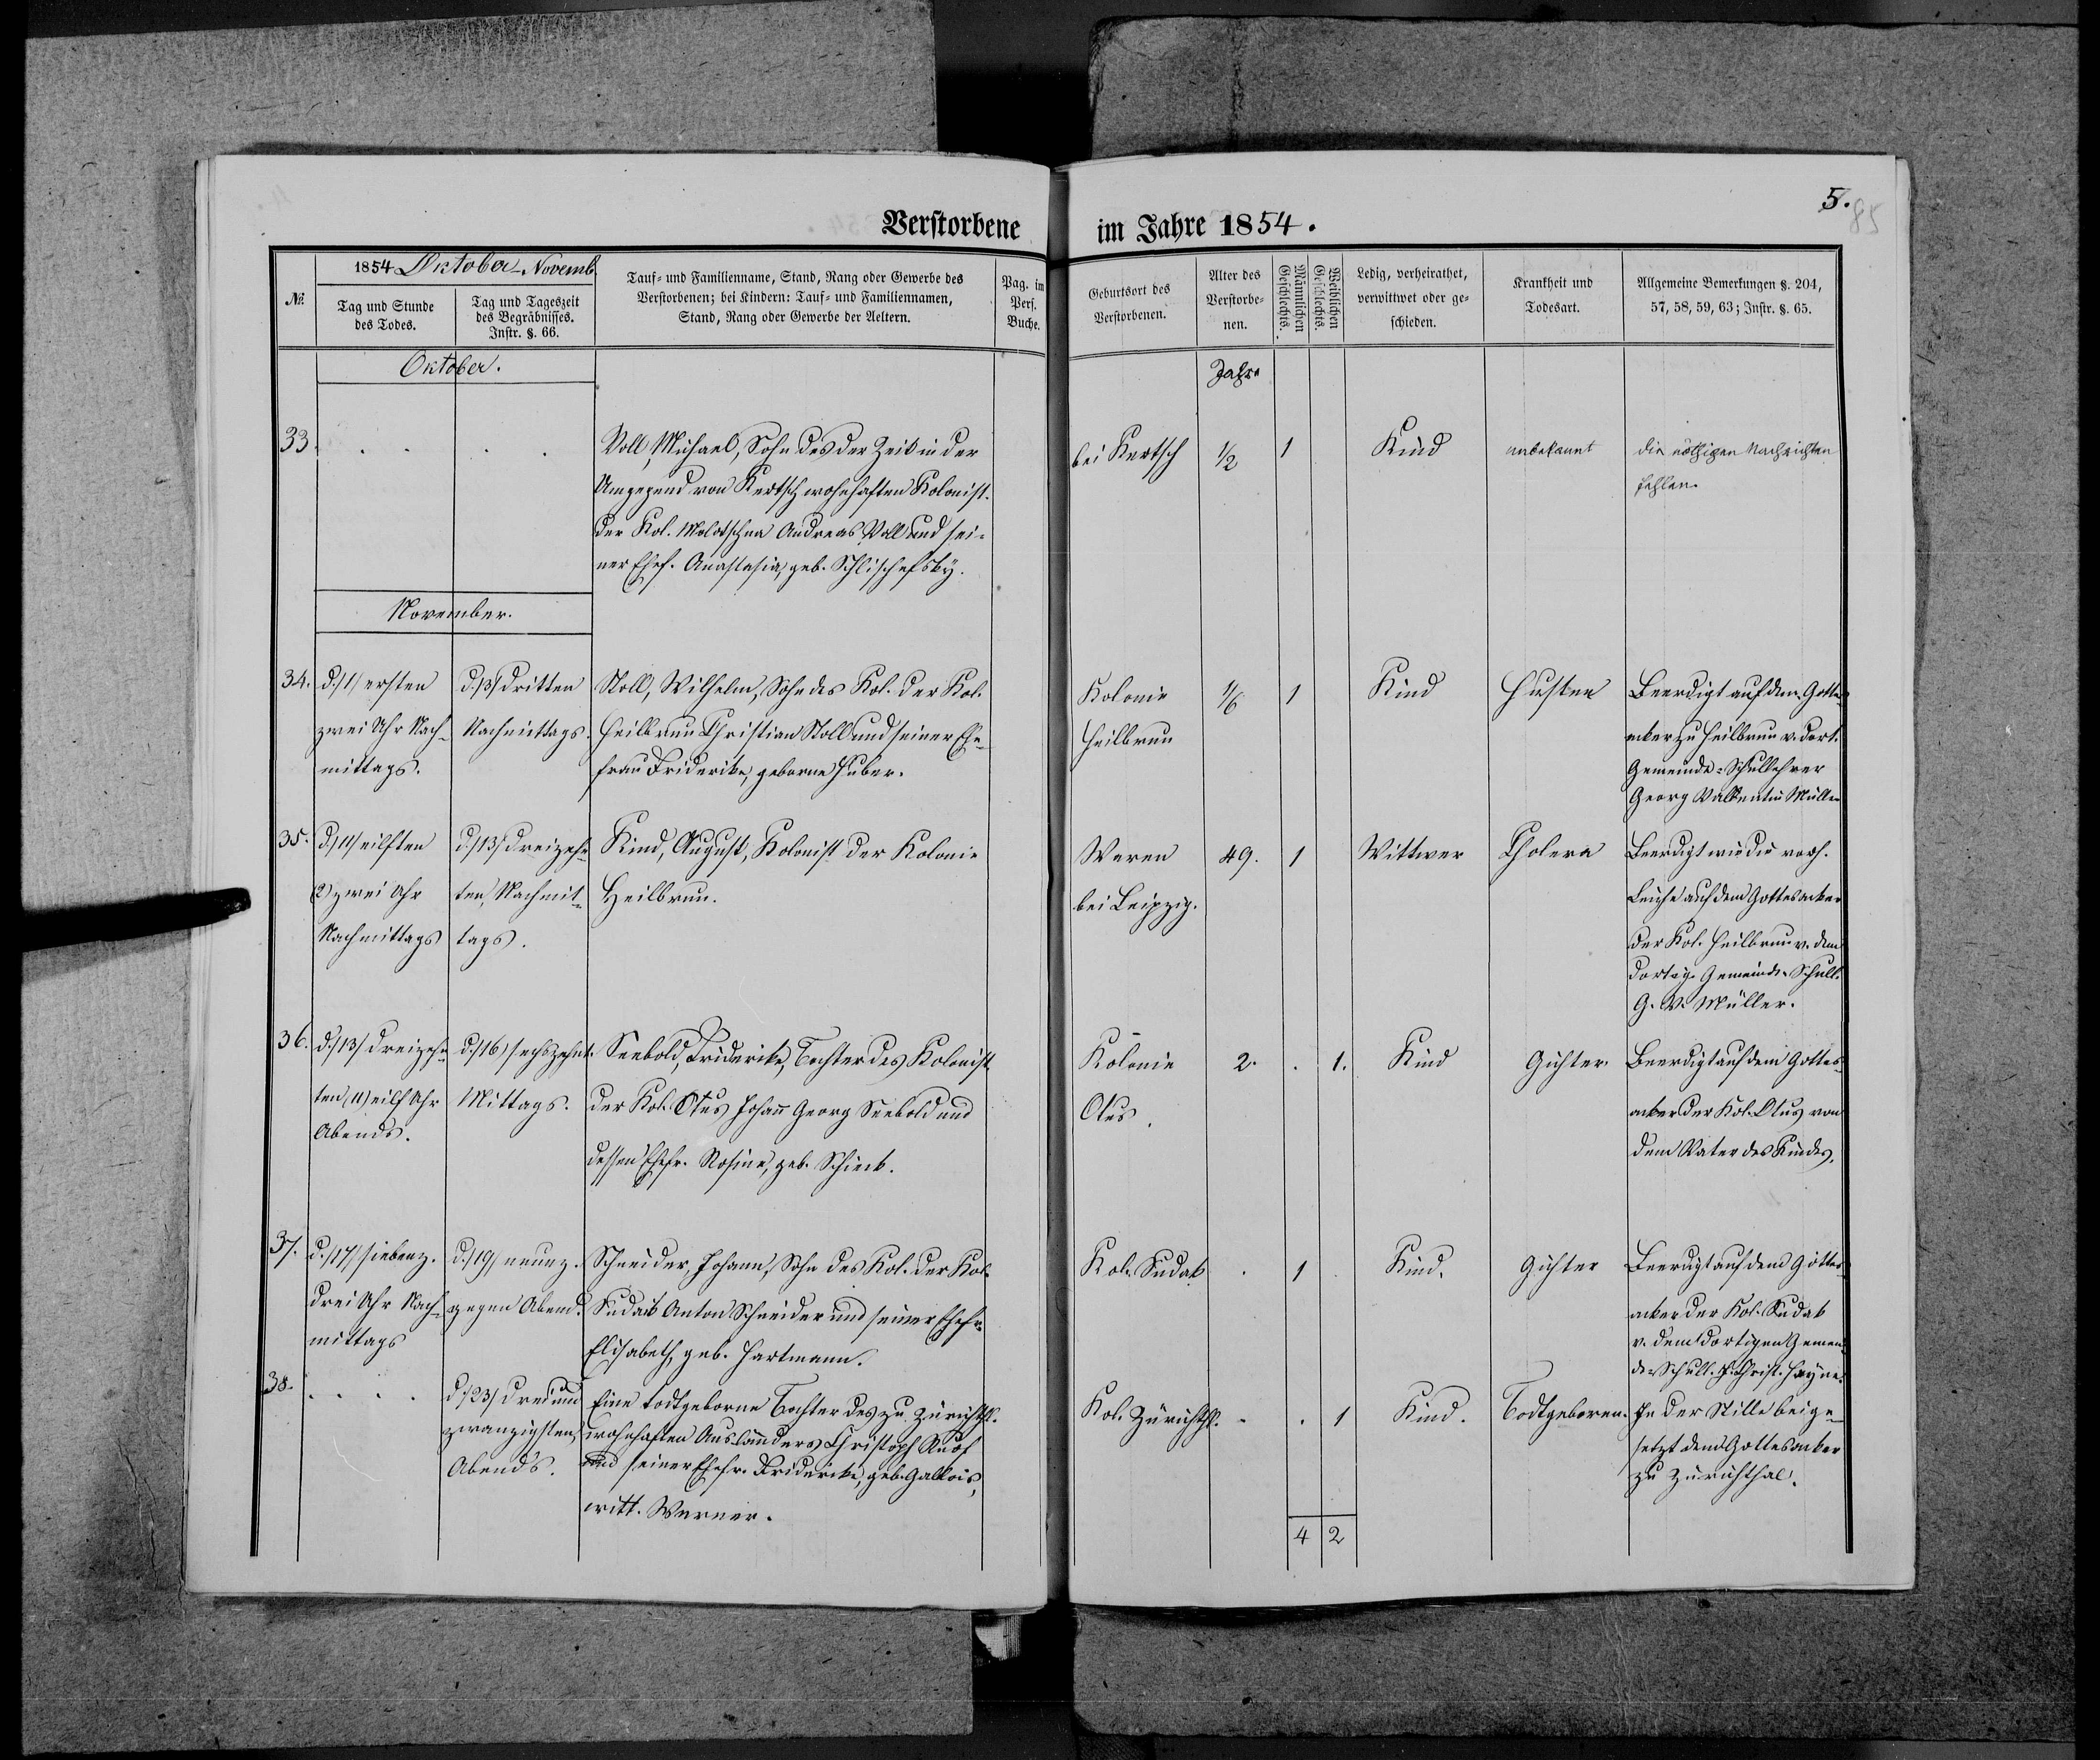 5.
85
Verstorbene im Jahre 1854.
№
1854 Oktober-Novemb.
Tag und Stunde
des Todes.
Tag und Tageszeit
des Begräbnisses.
Instr. §. 66.
Tauf- und Familienname, Stand, Rang oder Gewerbe des
Verstorbenen; bei Kindern: Tauf- und Familiennamen,
Stand, Rang oder Gewerbe der Aeltern.
Pag. im
Pers.
Buche.
Geburtsort des
Verstorbenen.
Alter des
Verstorbe-
nen.
Männlichen
Geschlechts.
Weiblichen
Geschlechts.
Ledig, verheirathet,
verwittwet oder ge-
schieden.
Krankheit und
Todesart.
Allgemeine Bemerkungen §. 204,
57, 58, 59, 63; Instr. §. 65.
Oktober.
Jahre
33. . . . .
Voll, Michael, Sohn des der Zeit in der
Umgegend von Kertsch wohnhaften Kolonist.
der Kol. Molotschna Andreas Voll und sei-
ner Ehef. Anastasia, geb. Schlischefsky.
bei Kertsch
1/2
1
Kind
unbekannt
die nöthigen Nachrichten
fehlen.
November.
34.
d./1/ ersten
zwei Uhr Nach-
mittags.
d./3/ dritten
Nachmittags.
Stoll, Wilhelm, Sohn des Kol. der Kol.
Heilbrun Christian Stoll und seiner Ehe-
frau Friderike, geborne Huber.
Kolonie
Heilbrun
1/6
1
Kind
Husten
Beerdigt auf dem Gottes-
acker zu Heilbrun v. dort.
Gemeinde-Schullehrer
Georg Valentin Müller
35.
d./11/ eilften
(2) zwei Uhr
Nachmittags
d./13/ dreizehn-
ten, Nachmit-
tags.
Kind, August, Kolonist der Kolonie
Heilbrun.
Waren
bei Leipzig.
49.
1
Wittwer
Cholera
Beerdigt wie die vorh.
Leiche auf dem Gottesacker
der Kol. Heilbrun v. dem
dortig. Gemeinde-Schull.
G. V. Müller.
36.
d./13/ dreizehn-
ten (11) eilf Uhr
Abends.
d./16/ sechszehnt.
Mittags.
Seebold, Friderike, Tochter des Kolonist.
der Kol. Otus Johann Georg Seebold und
dessen Ehefr. Rosine, geb. Schieck.
Kolonie
Otus.
2.
.
1.
Kind
Gichter.
Beerdigt auf dem Gottes-
acker der Kol. Otus von
dem Vater des Kindes.
37.
d./17/ siebenz.
drei Uhr Nach-
mittags
d./19/ neunz.
gegen Abend.
Schneider, Johann, Sohn des Kol. der Kol.
Sudak Anton Schneider und seiner Ehefr.
Elisabeth, geb. Hartmann.
Kol. Sudak
.
1
.
Kind.
Gichter
Beerdigt auf dem Gottes-
acker der Kol. Sudak
v. dem dortigen Gemein-
de-Schull. Christ. Hayne.
38.
. . . .
d./23/ drei und
zwanzigsten,
Abends.
Eine todtgeborne Tochter des zu Zürichth.
wohnhaften Ausländers Christoph Knof
und seiner Ehefr. Friderike, geb. Gallois,
witt. Werner.
Kol. Zürichth.
.
.
1
Kind.
Todtgeboren.
In der Stille beige-
setzt dem Gottesacker
zu Zürichthal.
4
2